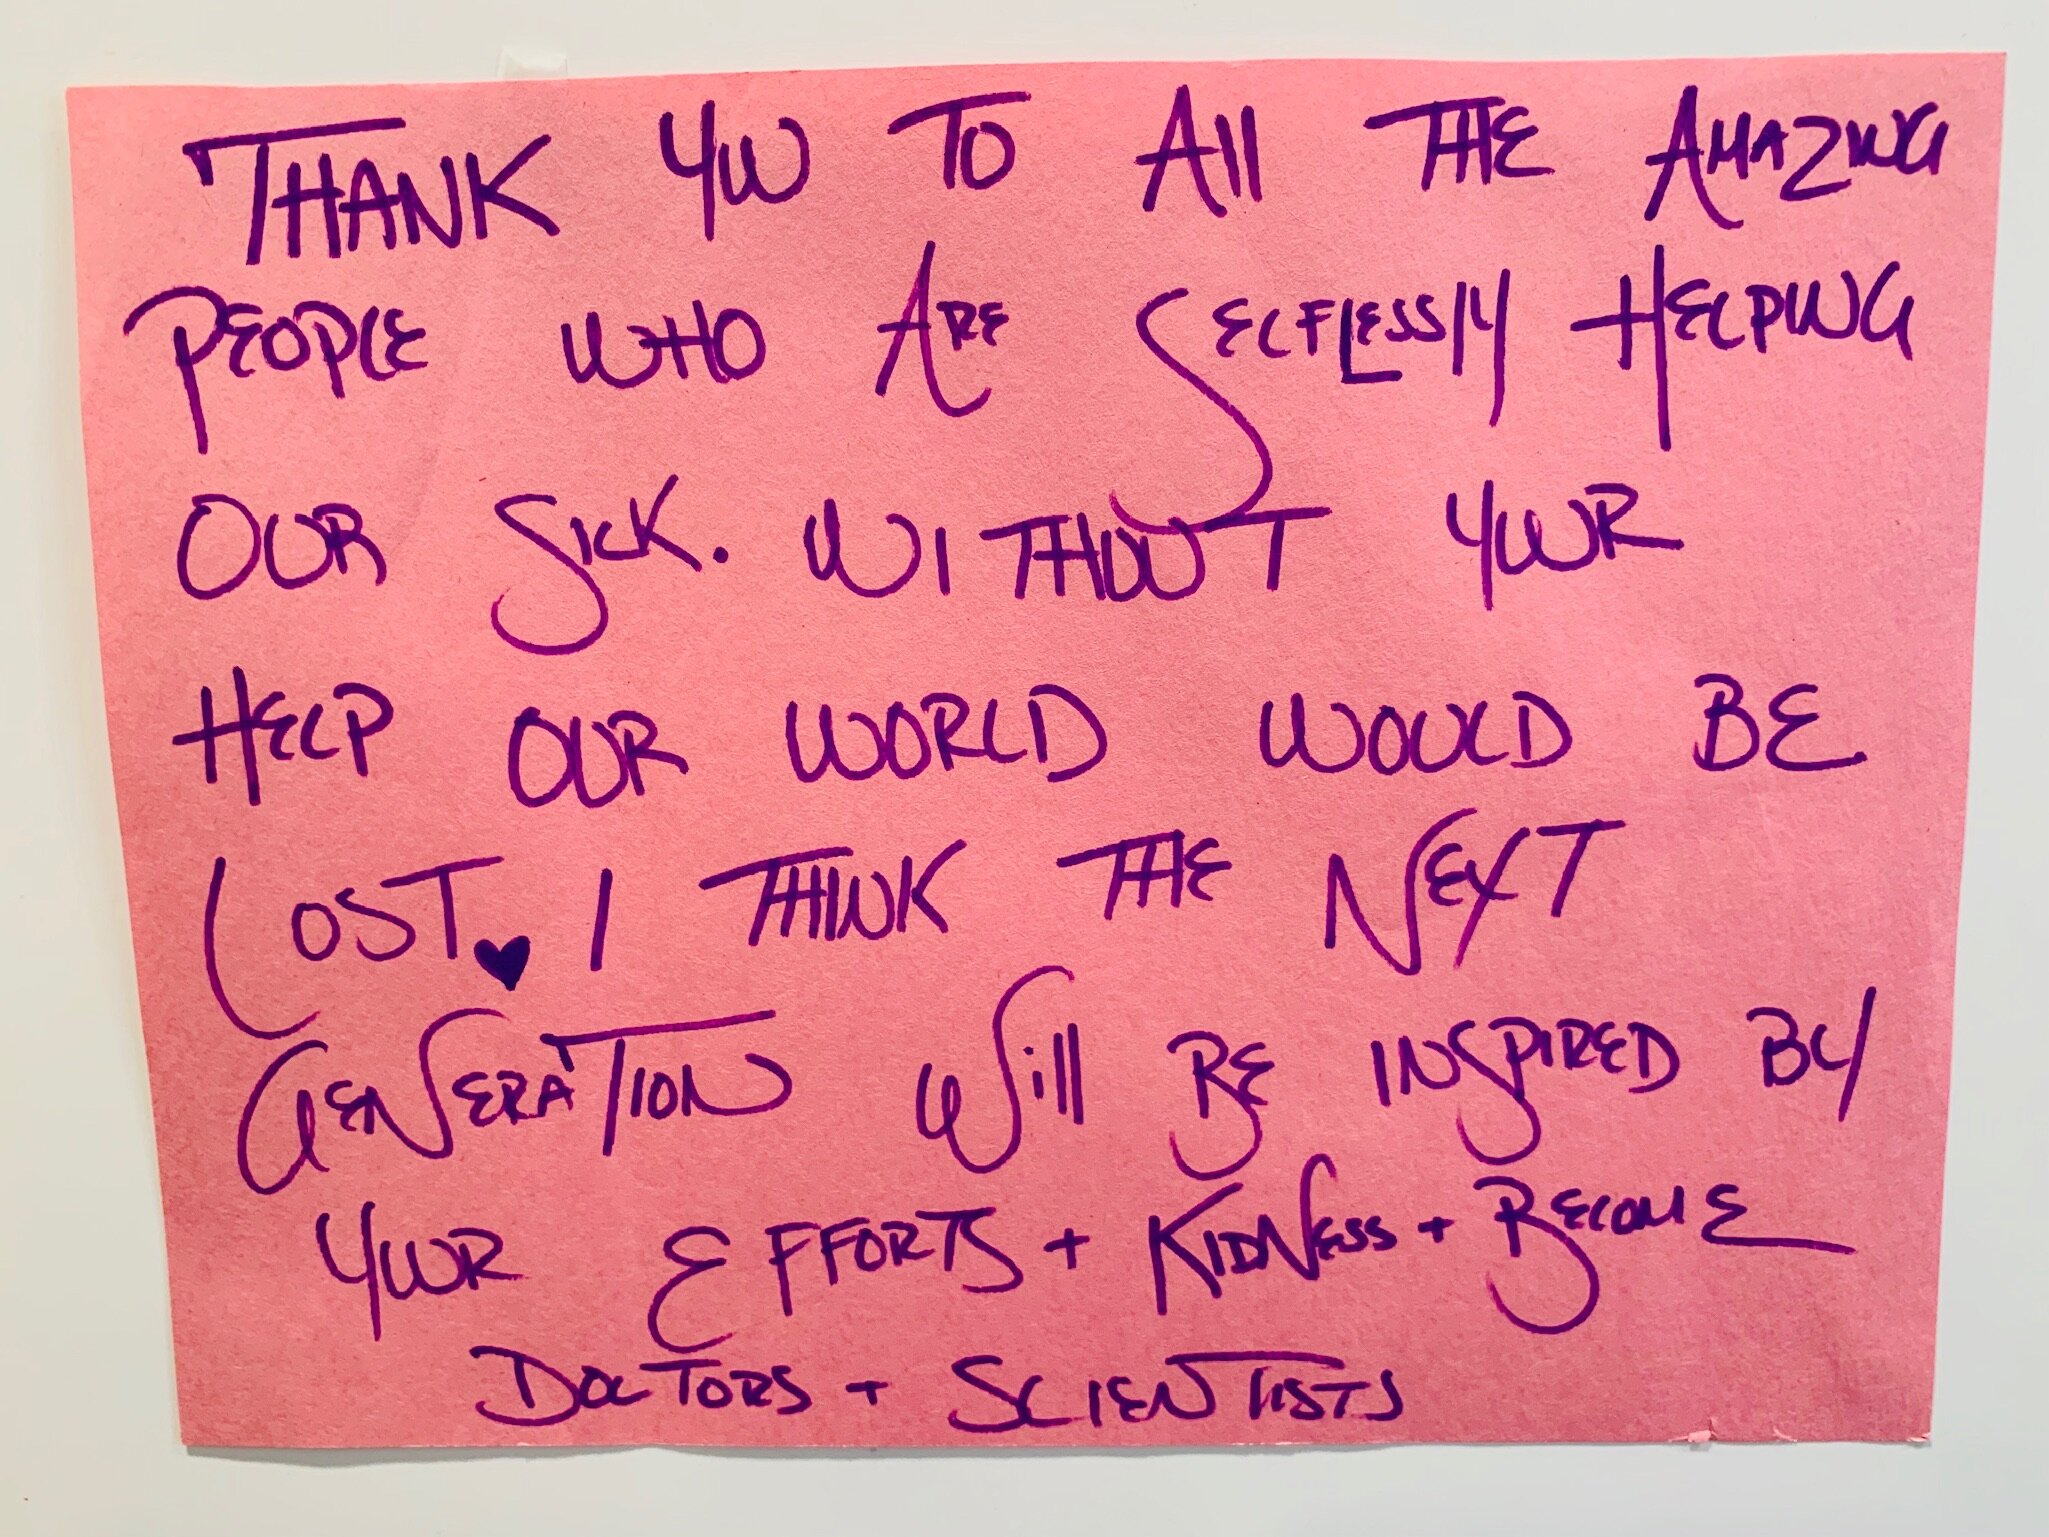 THANK YOU TO All THE AMAZING
PEOPLE WHO ARE SELFLESSlY HELPING
OUR SICK. WITHOUT YOUR
HELP OUR WORLD WOULD BE
LOST♥ I THINK THE NEXT
GENERATION Will BE INSPIRED BY
YOUR EFFORTS + KIDNESS + BECOME
DOCTORS + SCIENTISTS